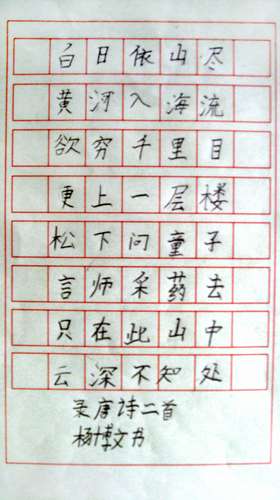 白日依山尽
黄河入海流
欲穷千里目
更上一层楼
松下问童子
言师采药去
只在此山中
云深不知处
录唐诗二首
杨博文书